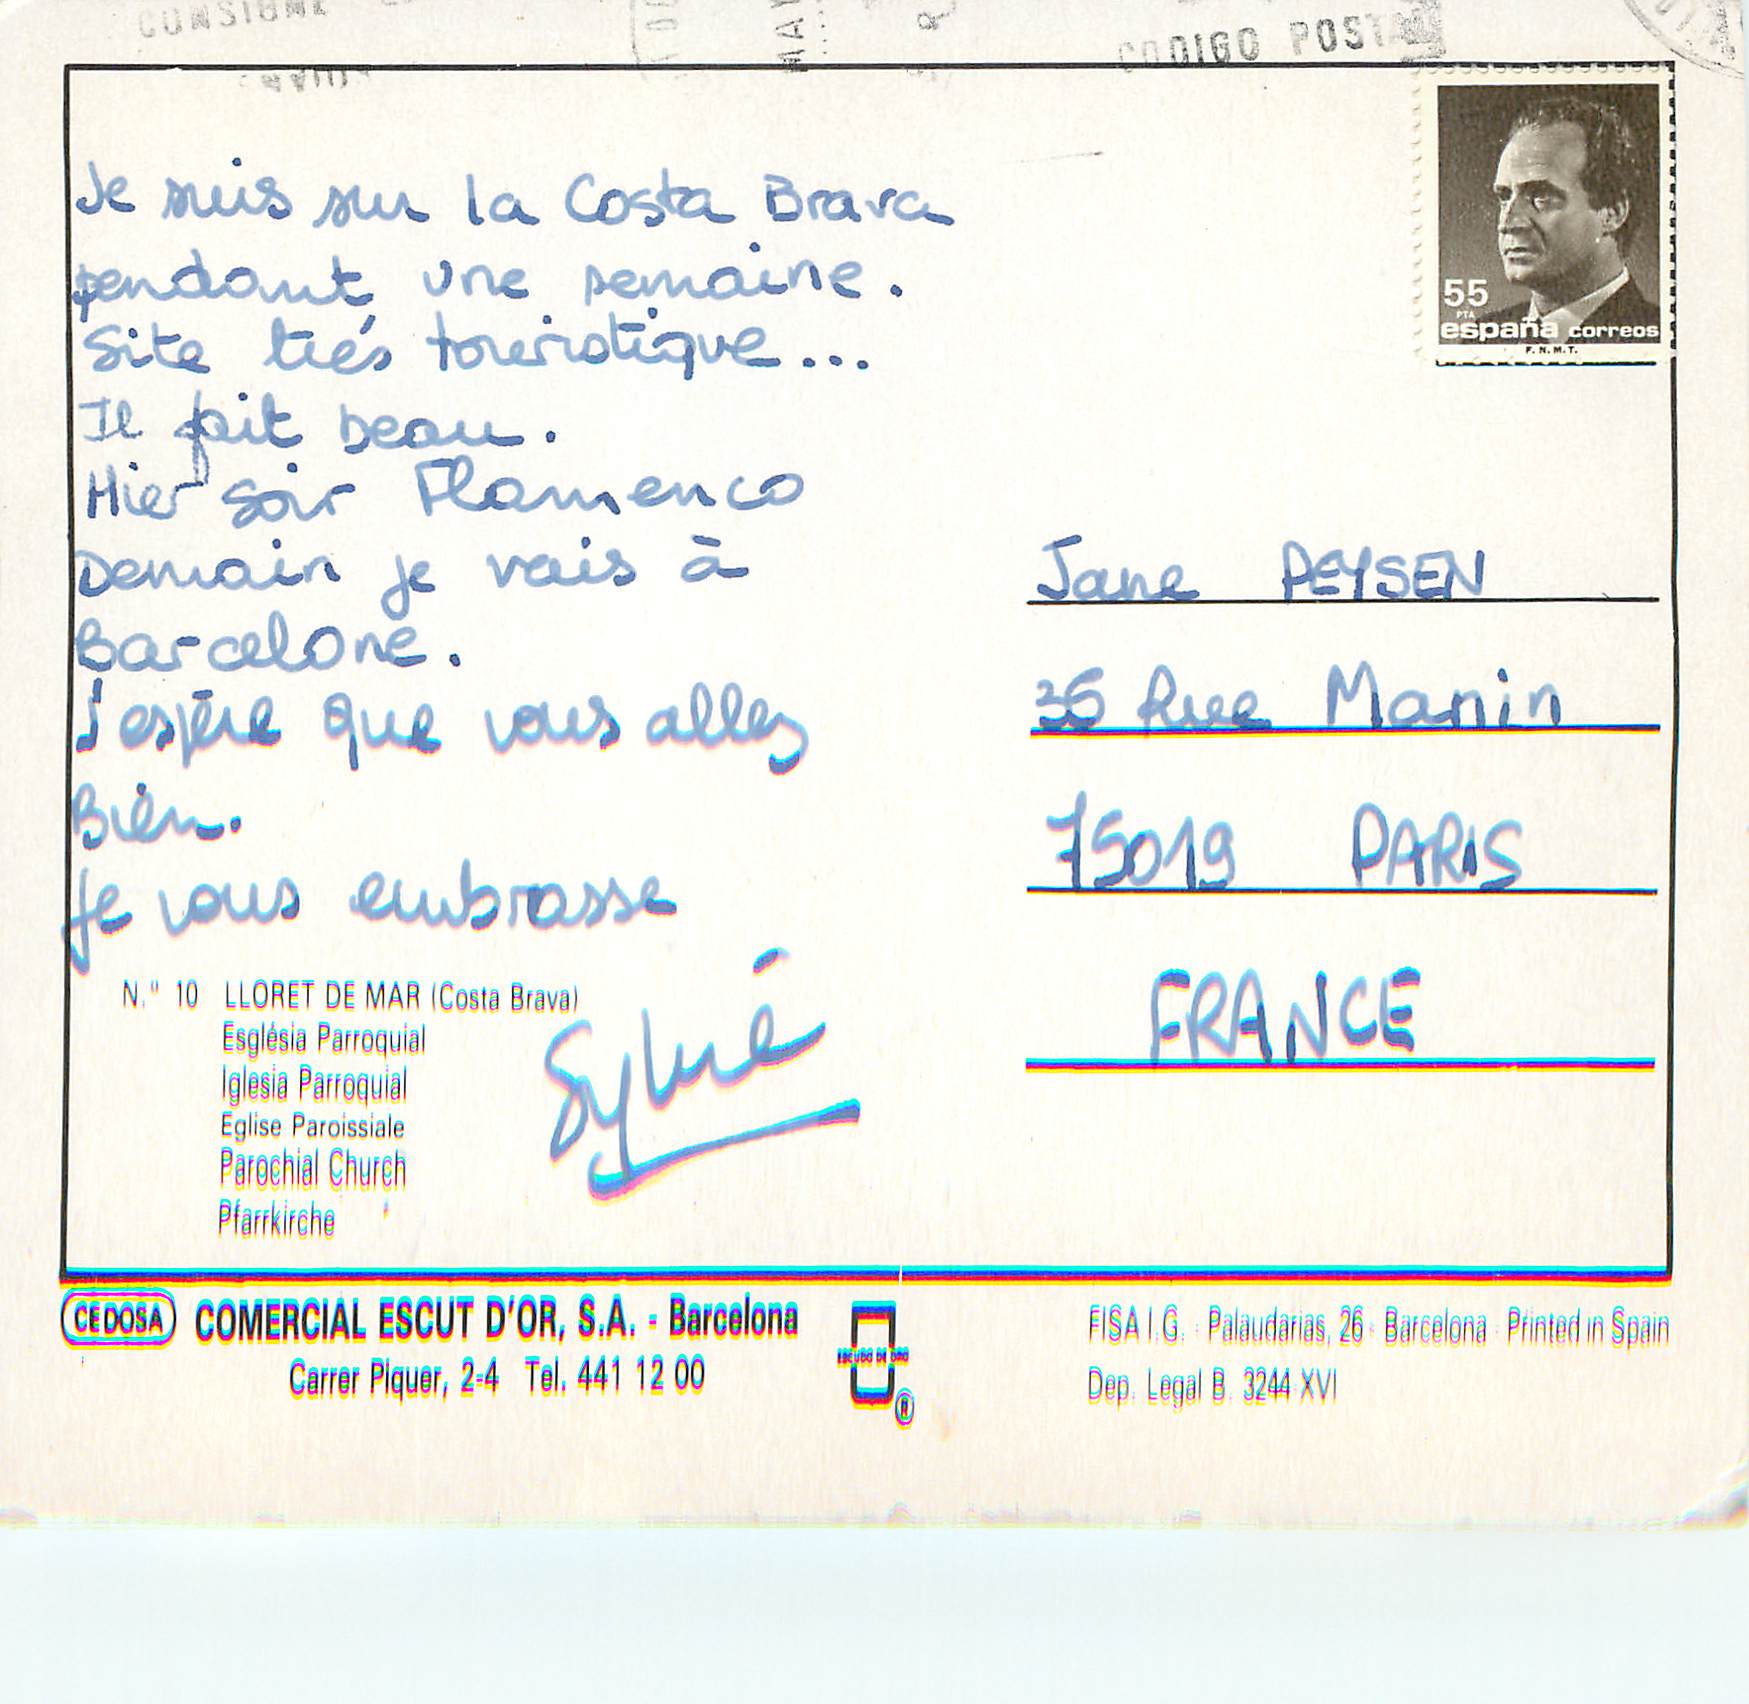 CONSIGNE
CODIGO POSTAL
55
PTA
españa correos
F.N.M.T.
Je suis sur la Costa Brava
pendant une semaine.
Site très touristique...
Il fait beau.
Hier soir Flamenco
Demain je vais à
Barcelone.
J'espère que vous allez
Bien.
Je vous embrasse
Sylvie
Jane PEYSEN
36 Rue Manin
75019 PARIS
FRANCE
N.º 10 LLORET DE MAR (Costa Brava)
Església Parroquial
Iglesia Parroquial
Eglise Paroissiale
Parochial Church
Pfarrkirche
CEDOSA COMERCIAL ESCUT D'OR, S.A. - Barcelona
Carrer Piquer, 2-4 Tel. 441 12 00
ESCUDO DE ORO
®
FISA I.G. - Palaudarias, 26 - Barcelona - Printed in Spain
Dep. Legal B. 3244-XVI